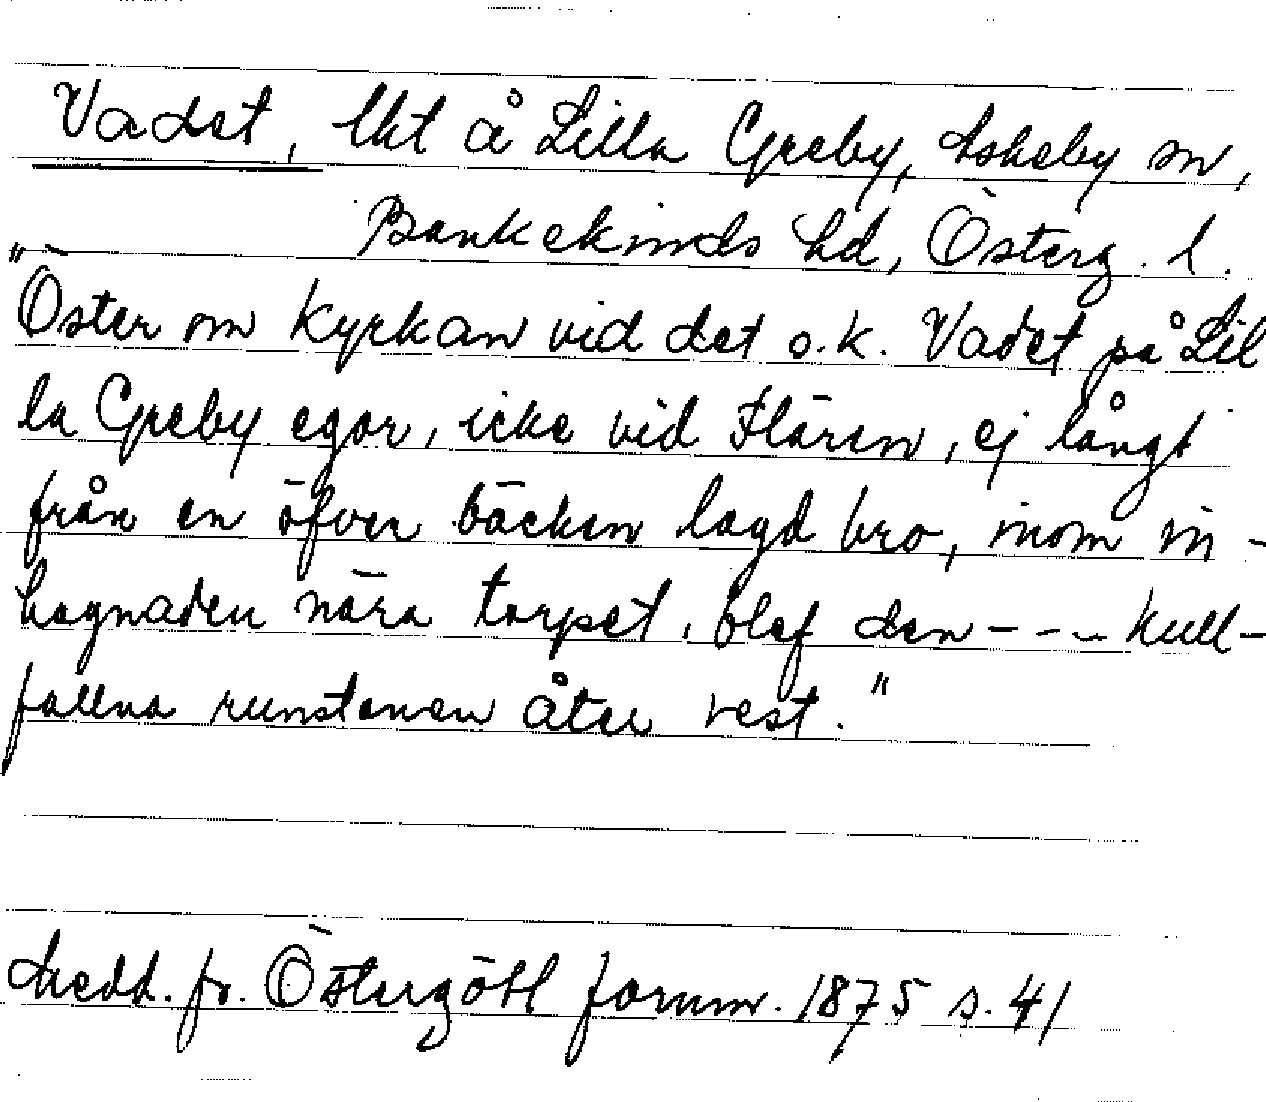 Vadet, lkt å Lilla Greby, Askeby sn,
Bankekinds hd, Österg. l.
"Öster om kyrkan vid det s.k. Vadet på Lil
la Greby egor, icke vid Flären, ej långt
från en öfver bäcken lagd bro, inom in-
hagnaden nära torpet, blef den --- kull-
fallna runstenen åter rest."
Medd. fr. Östergötl fornm. 1875 s. 41